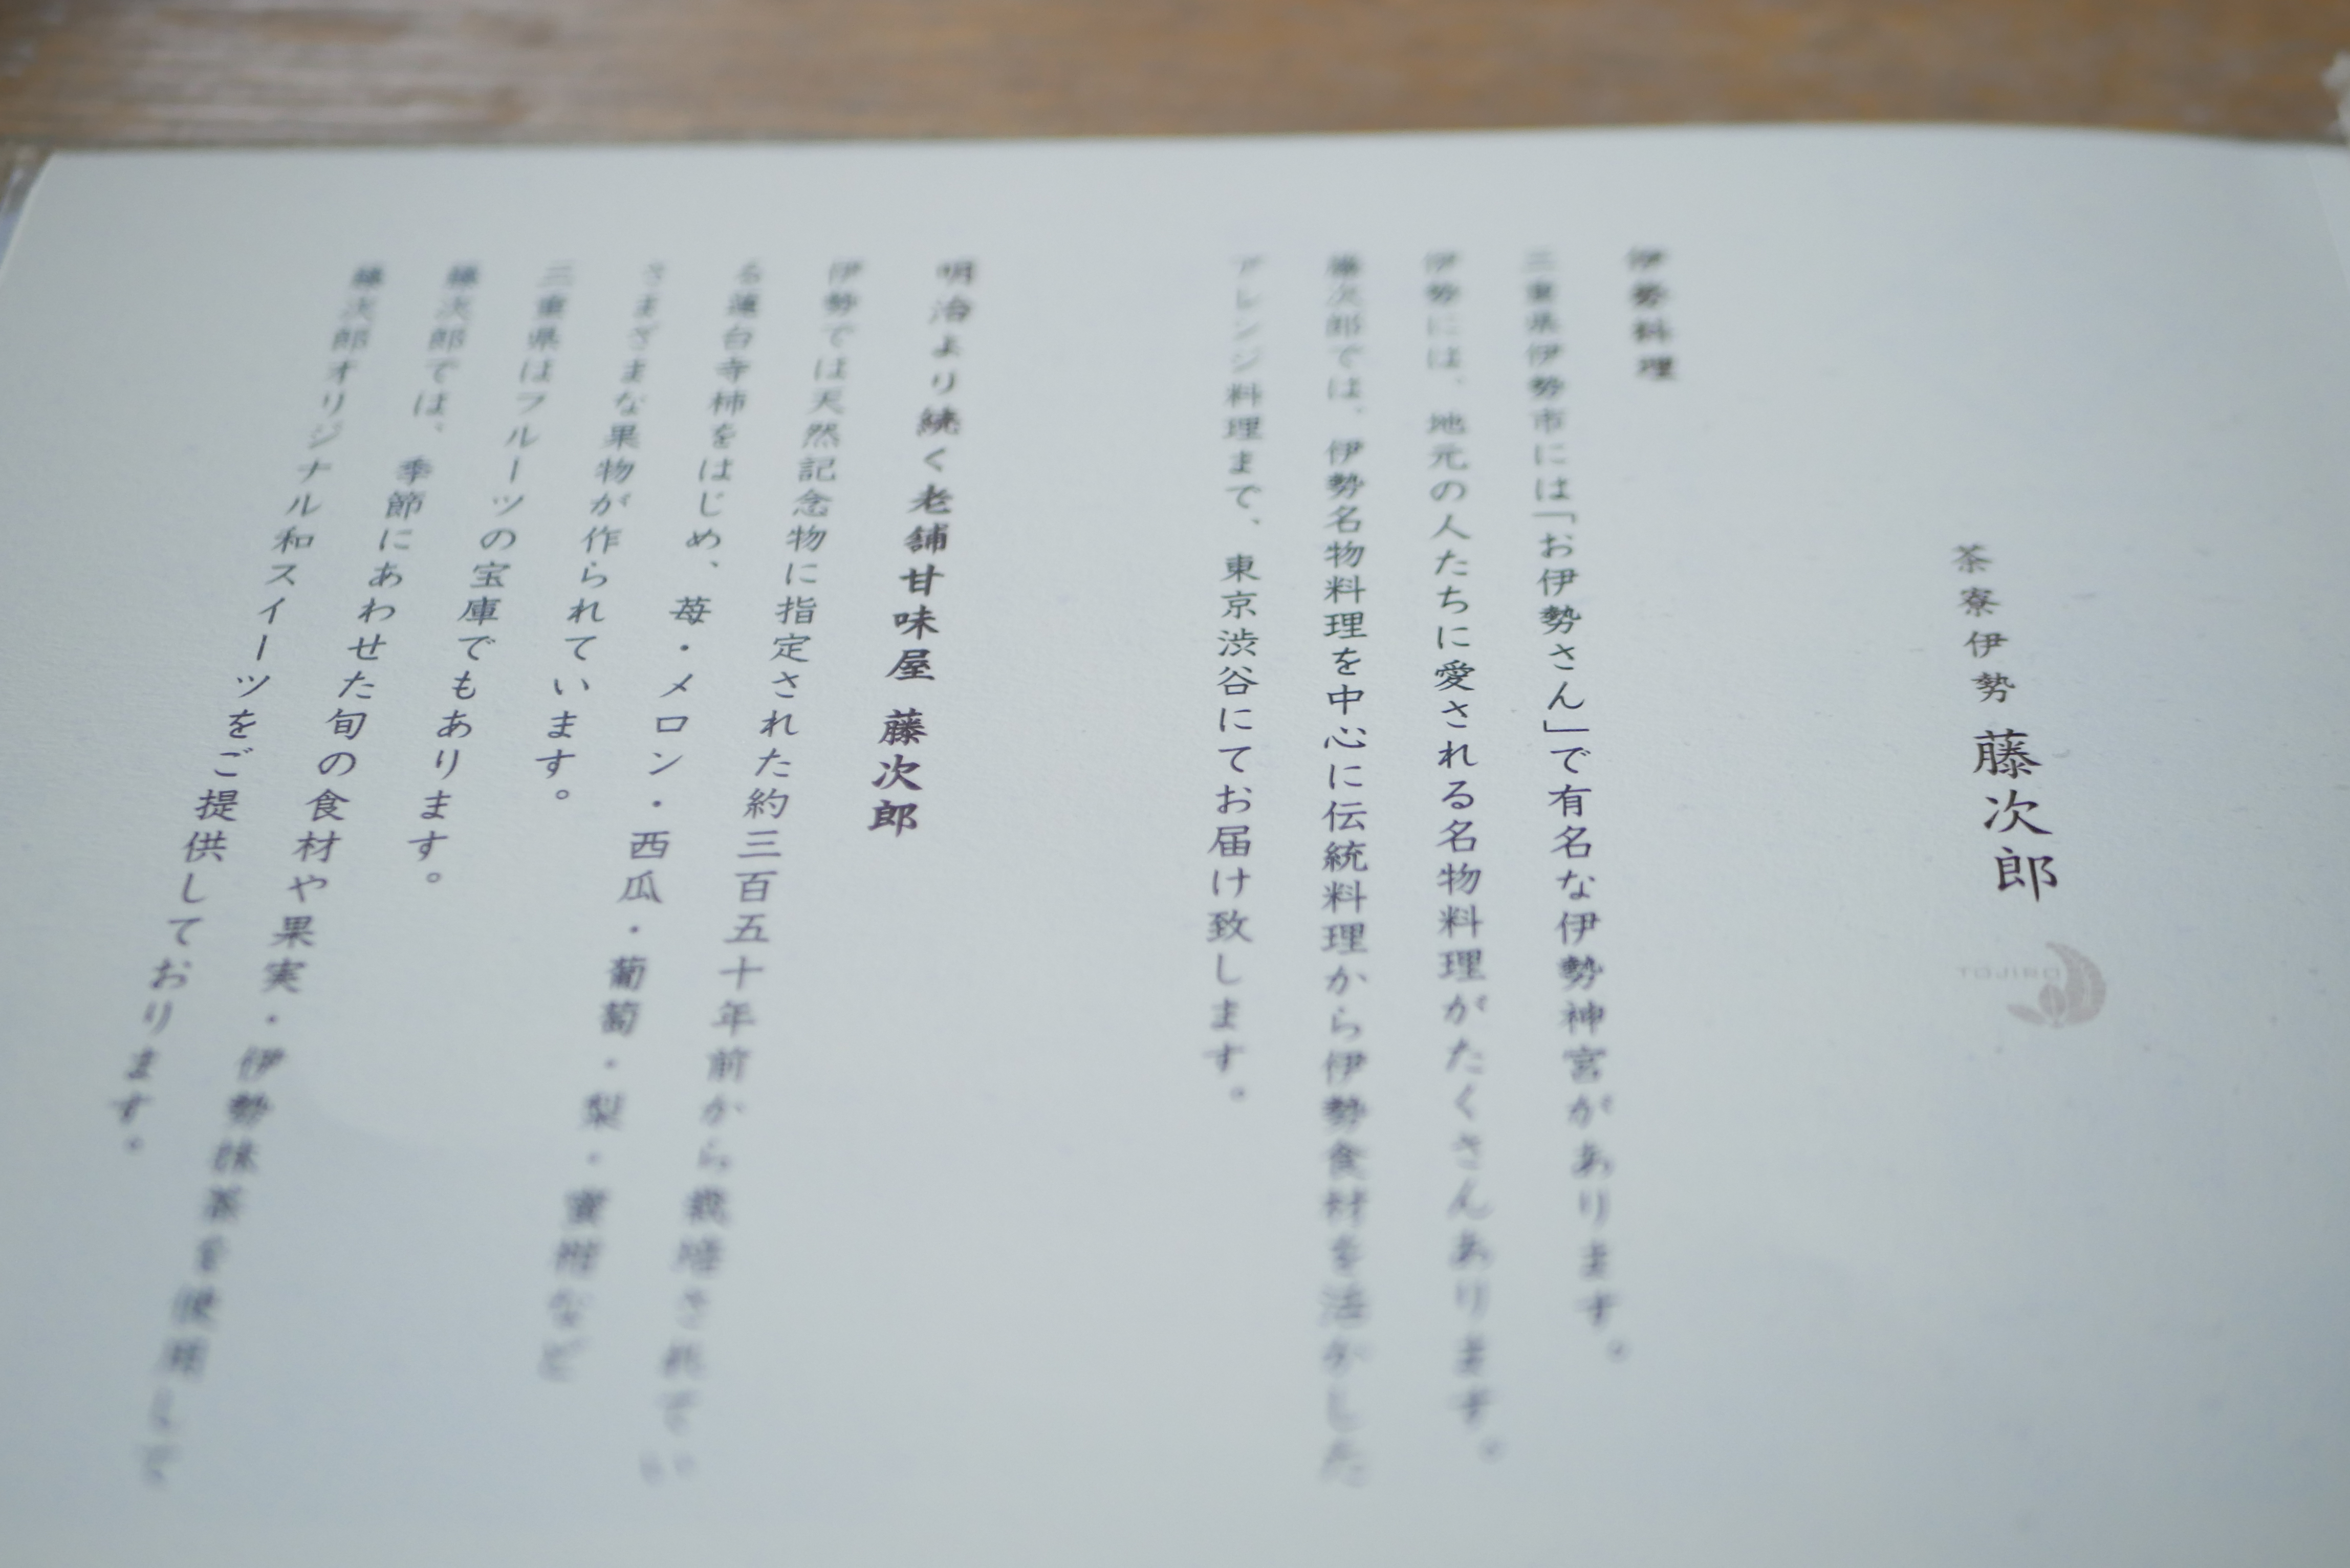 茶寮伊勢 藤次郎
伊勢料理
三重県伊勢市には「お伊勢さん」で有名な伊勢神宮があります。
伊勢には、地元の人たちに愛される名物料理がたくさんあります。
藤次郎では、伊勢名物料理を中心に伝統料理から伊勢食材を活かした
アレンジ料理まで、東京渋谷にてお届け致します。
明治より続く老舗甘味屋 藤次郎
伊勢では天然記念物に指定された約三百五十年前から栽培されてい
る蓮台寺柿をはじめ、苺・メロン・西瓜・葡萄・梨・蜜柑など
さまざまな果物が作られています。
三重県はフルーツの宝庫でもあります。
藤次郎では、季節にあわせた旬の食材や果実・伊勢抹茶を使用して
藤次郎オリジナル和スイーツをご提供しております。